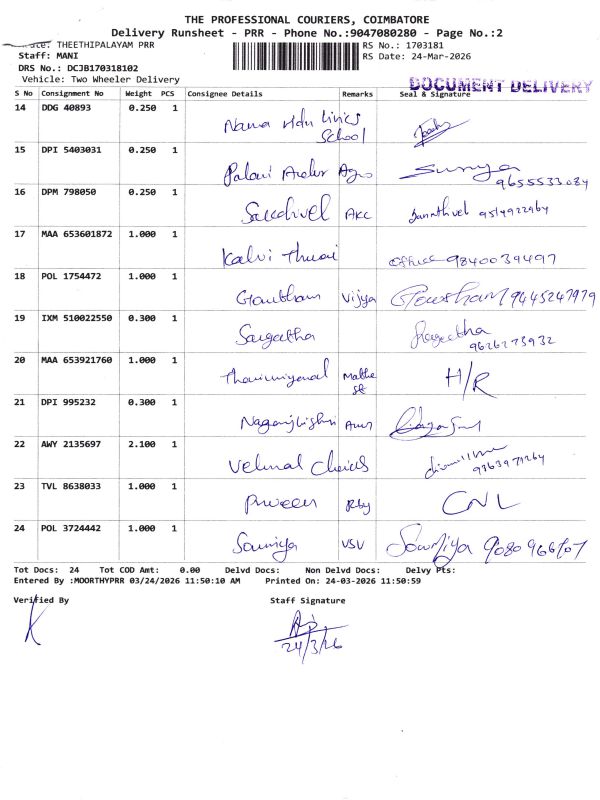 THE PROFESSIONAL COURIERS, COIMBATORE
Delivery Runsheet - PRR - Phone No.:9047080280 - Page No.:2
THEETHIPALAYAM PRR
RS No.: 1703181
Staff: MANI
RS Date: 24-Mar-2026
DRS No.: DCJB170318102
Vehicle: Two Wheeler Delivery
DOCUMENT DELIVERY
S No Consignment No Weight PCS Consignee Details Remarks Seal & Signature
14 DDG 40893 0.250 1
School
15 DPI 5403031 0.250 1 Palani Agro Surya
9655533084
16 DPM 798050 0.250 1 Sakthivel AKC
17 MAA 653601872 1.000 1 Kalvi office 9840039497
18 POL 1754472 1.000 1 Goutham Vijya Gowtham 9445247979
19 IXM 510022550 0.300 1 Sangeetha Sangeetha
9626275932
20 MAA 653921760 1.000 1 H/R
21 DPI 995232 0.300 1
22 AWY 2135697 2.100 1 Velmal Choices
23 TVL 8638033 1.000 1 Praveen CNL
24 POL 3724442 1.000 1 Soumiya VSV Sowmiya
Tot Docs: 24 Tot COD Amt: 0.00 Delvd Docs: Non Delvd Docs: Delvy Pts:
Entered By :MOORTHYPRR 03/24/2026 11:50:10 AM Printed On: 24-03-2026 11:50:59
Verified By Staff Signature
24/3/26